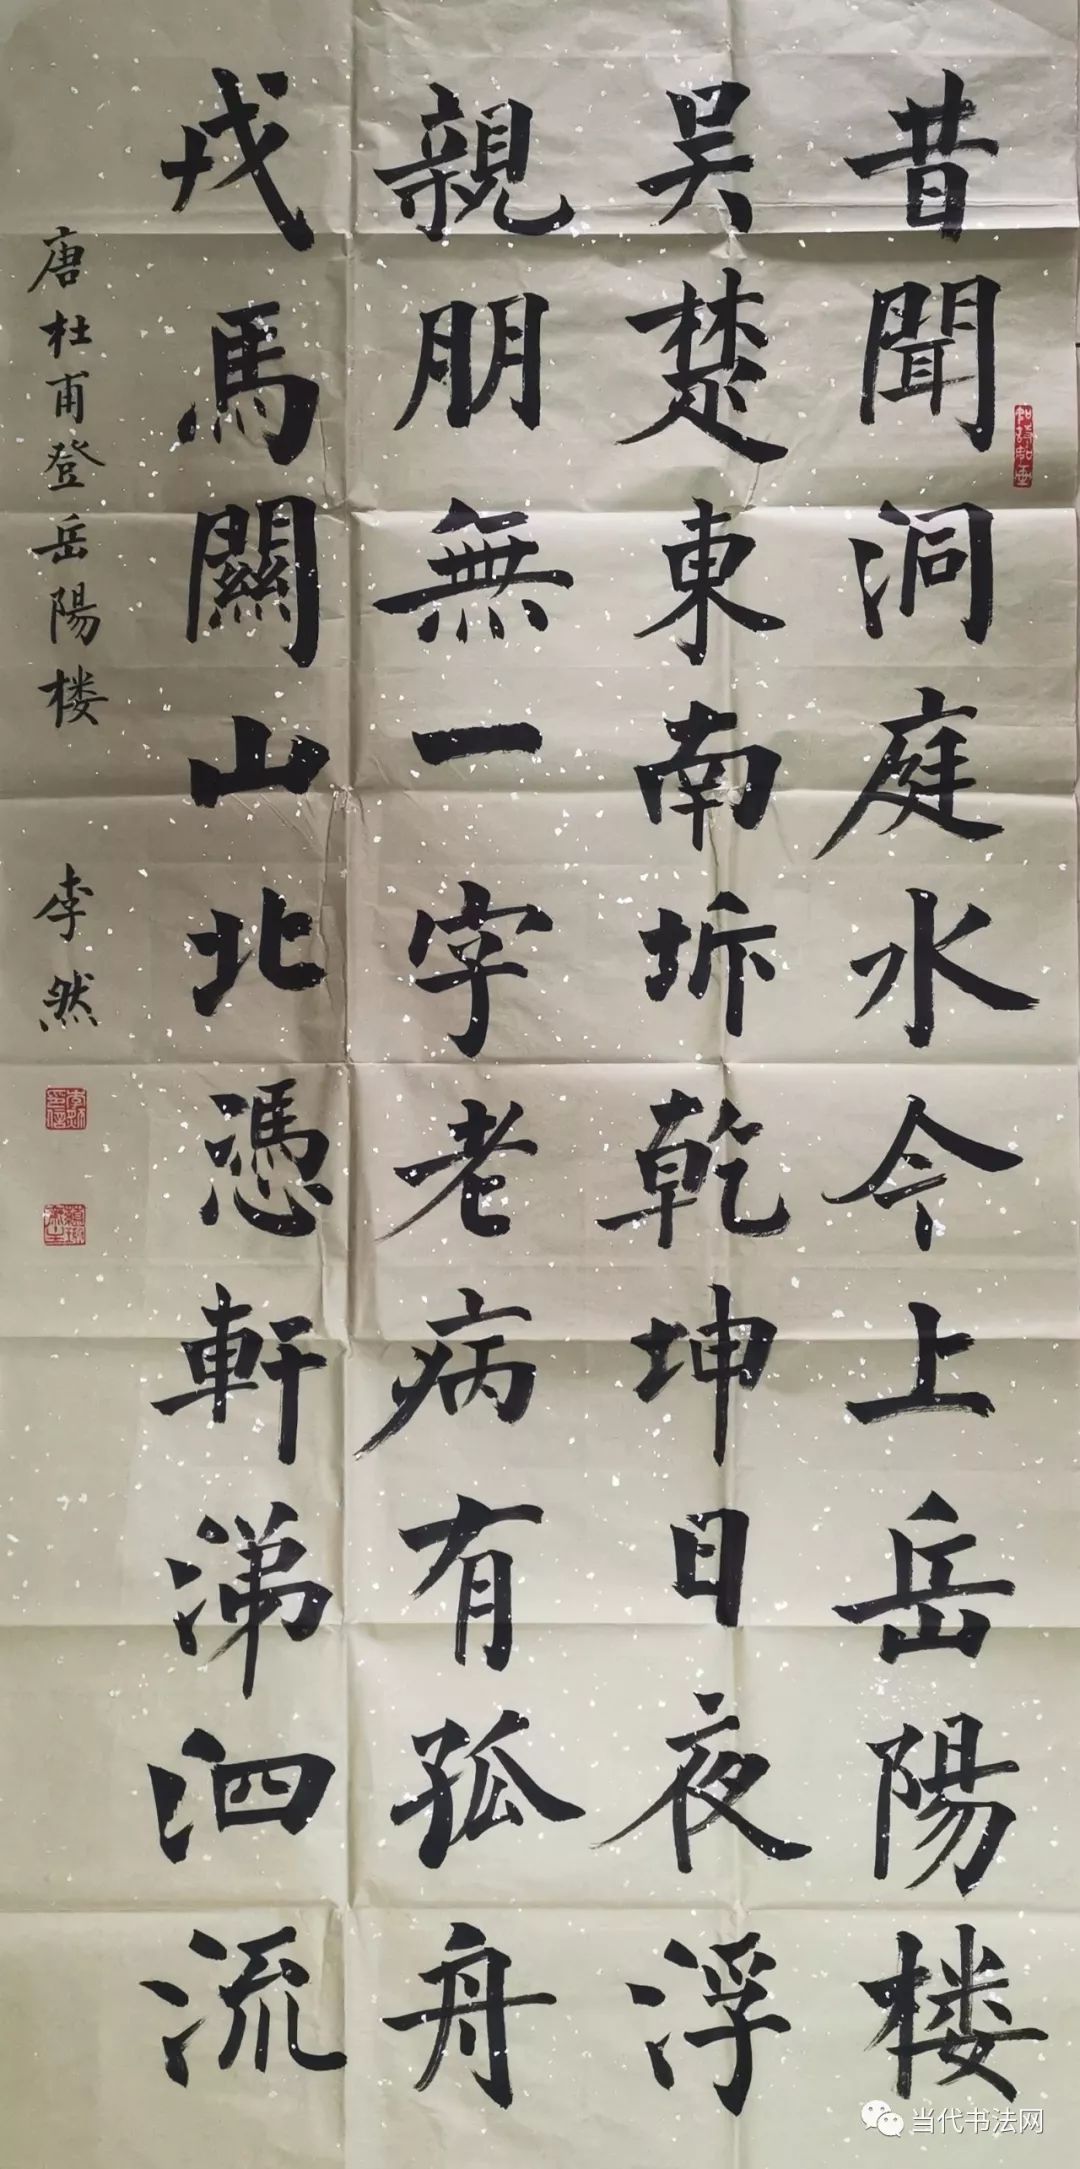 昔聞洞庭水今上岳陽楼
吴楚東南坼乾坤日夜浮
親朋無一字老病有孤舟
戎馬關山北憑軒涕泗流
唐杜甫登岳陽楼 李然
当代书法网